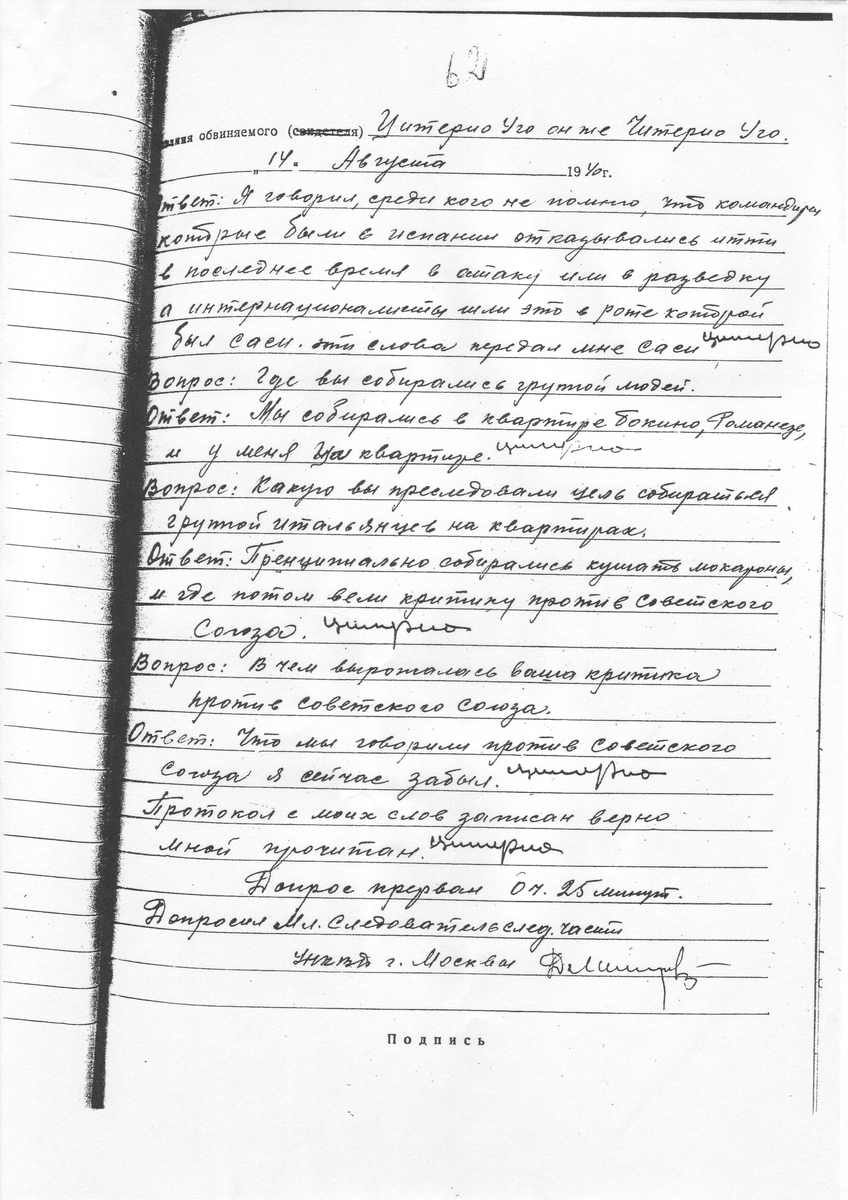 62
зания обвиняемого (свидетеля) Цитерио Уго он же Читерио Уго.
„14„ Августа 1940г.
Ответ: Я говорил, среди кого не помню, что командиры
которые были в испании отказывались итти
в последнее время в атаку или в разведку
а интернационалисты шли это в роте которой
был саси. эти слова передал мне саси Цитерио
Вопрос: Где вы собирались групой людей.
Ответ: Мы собирались в квартире Бокино, Романезе,
и у меня на квартире. Цитерио
Вопрос: Какую вы преследовали цель собираться
групой итальянцев на квартирах.
Ответ: Пренципиально собирались кушать мокароны,
и где потом вели критику против Советского
Союза. Цитерио
Вопрос: В чем вырожалась ваша критика
против советского союза.
Ответ: Что мы говорили против советского
союза я сейчас забыл. Цитерио
Протокол с моих слов записан верно
мной прочитан. Цитерио
Допрос прерван 0 ч. 25 минут.
Допросил Мл. Следователь след. части
УНКВД г. Москвы
Подпись